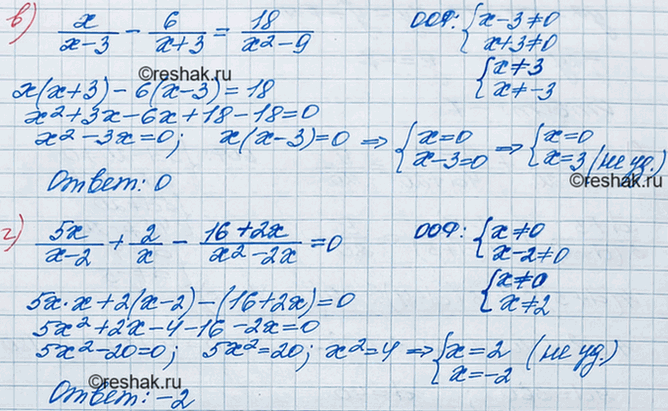 в) x/(x-3) - 6/(x+3) = 18/(x²-9)    ООФ: { x-3≠0
x+3≠0
{ x≠3
x≠-3
©reshak.ru
x(x+3)-6(x-3)=18
x²+3x-6x+18-18=0
x²-3x=0;    x(x-3)=0 ⇒ { x=0    x-3=0 ⇒ { x=0    x=3 (не уд.)
©reshak.ru
Ответ: 0
г) 5x/(x-2) + 2/x - (16+2x)/(x²-2x) = 0    ООФ: { x≠0
x-2≠0
{ x≠0
x≠2
5x·x+2(x-2)-(16+2x)=0
5x²+2x-4-16-2x=0
5x²-20=0;  5x²=20;  x²=4 ⇒ { x=2 (не уд.)
x=-2
©reshak.ru
Ответ: -2